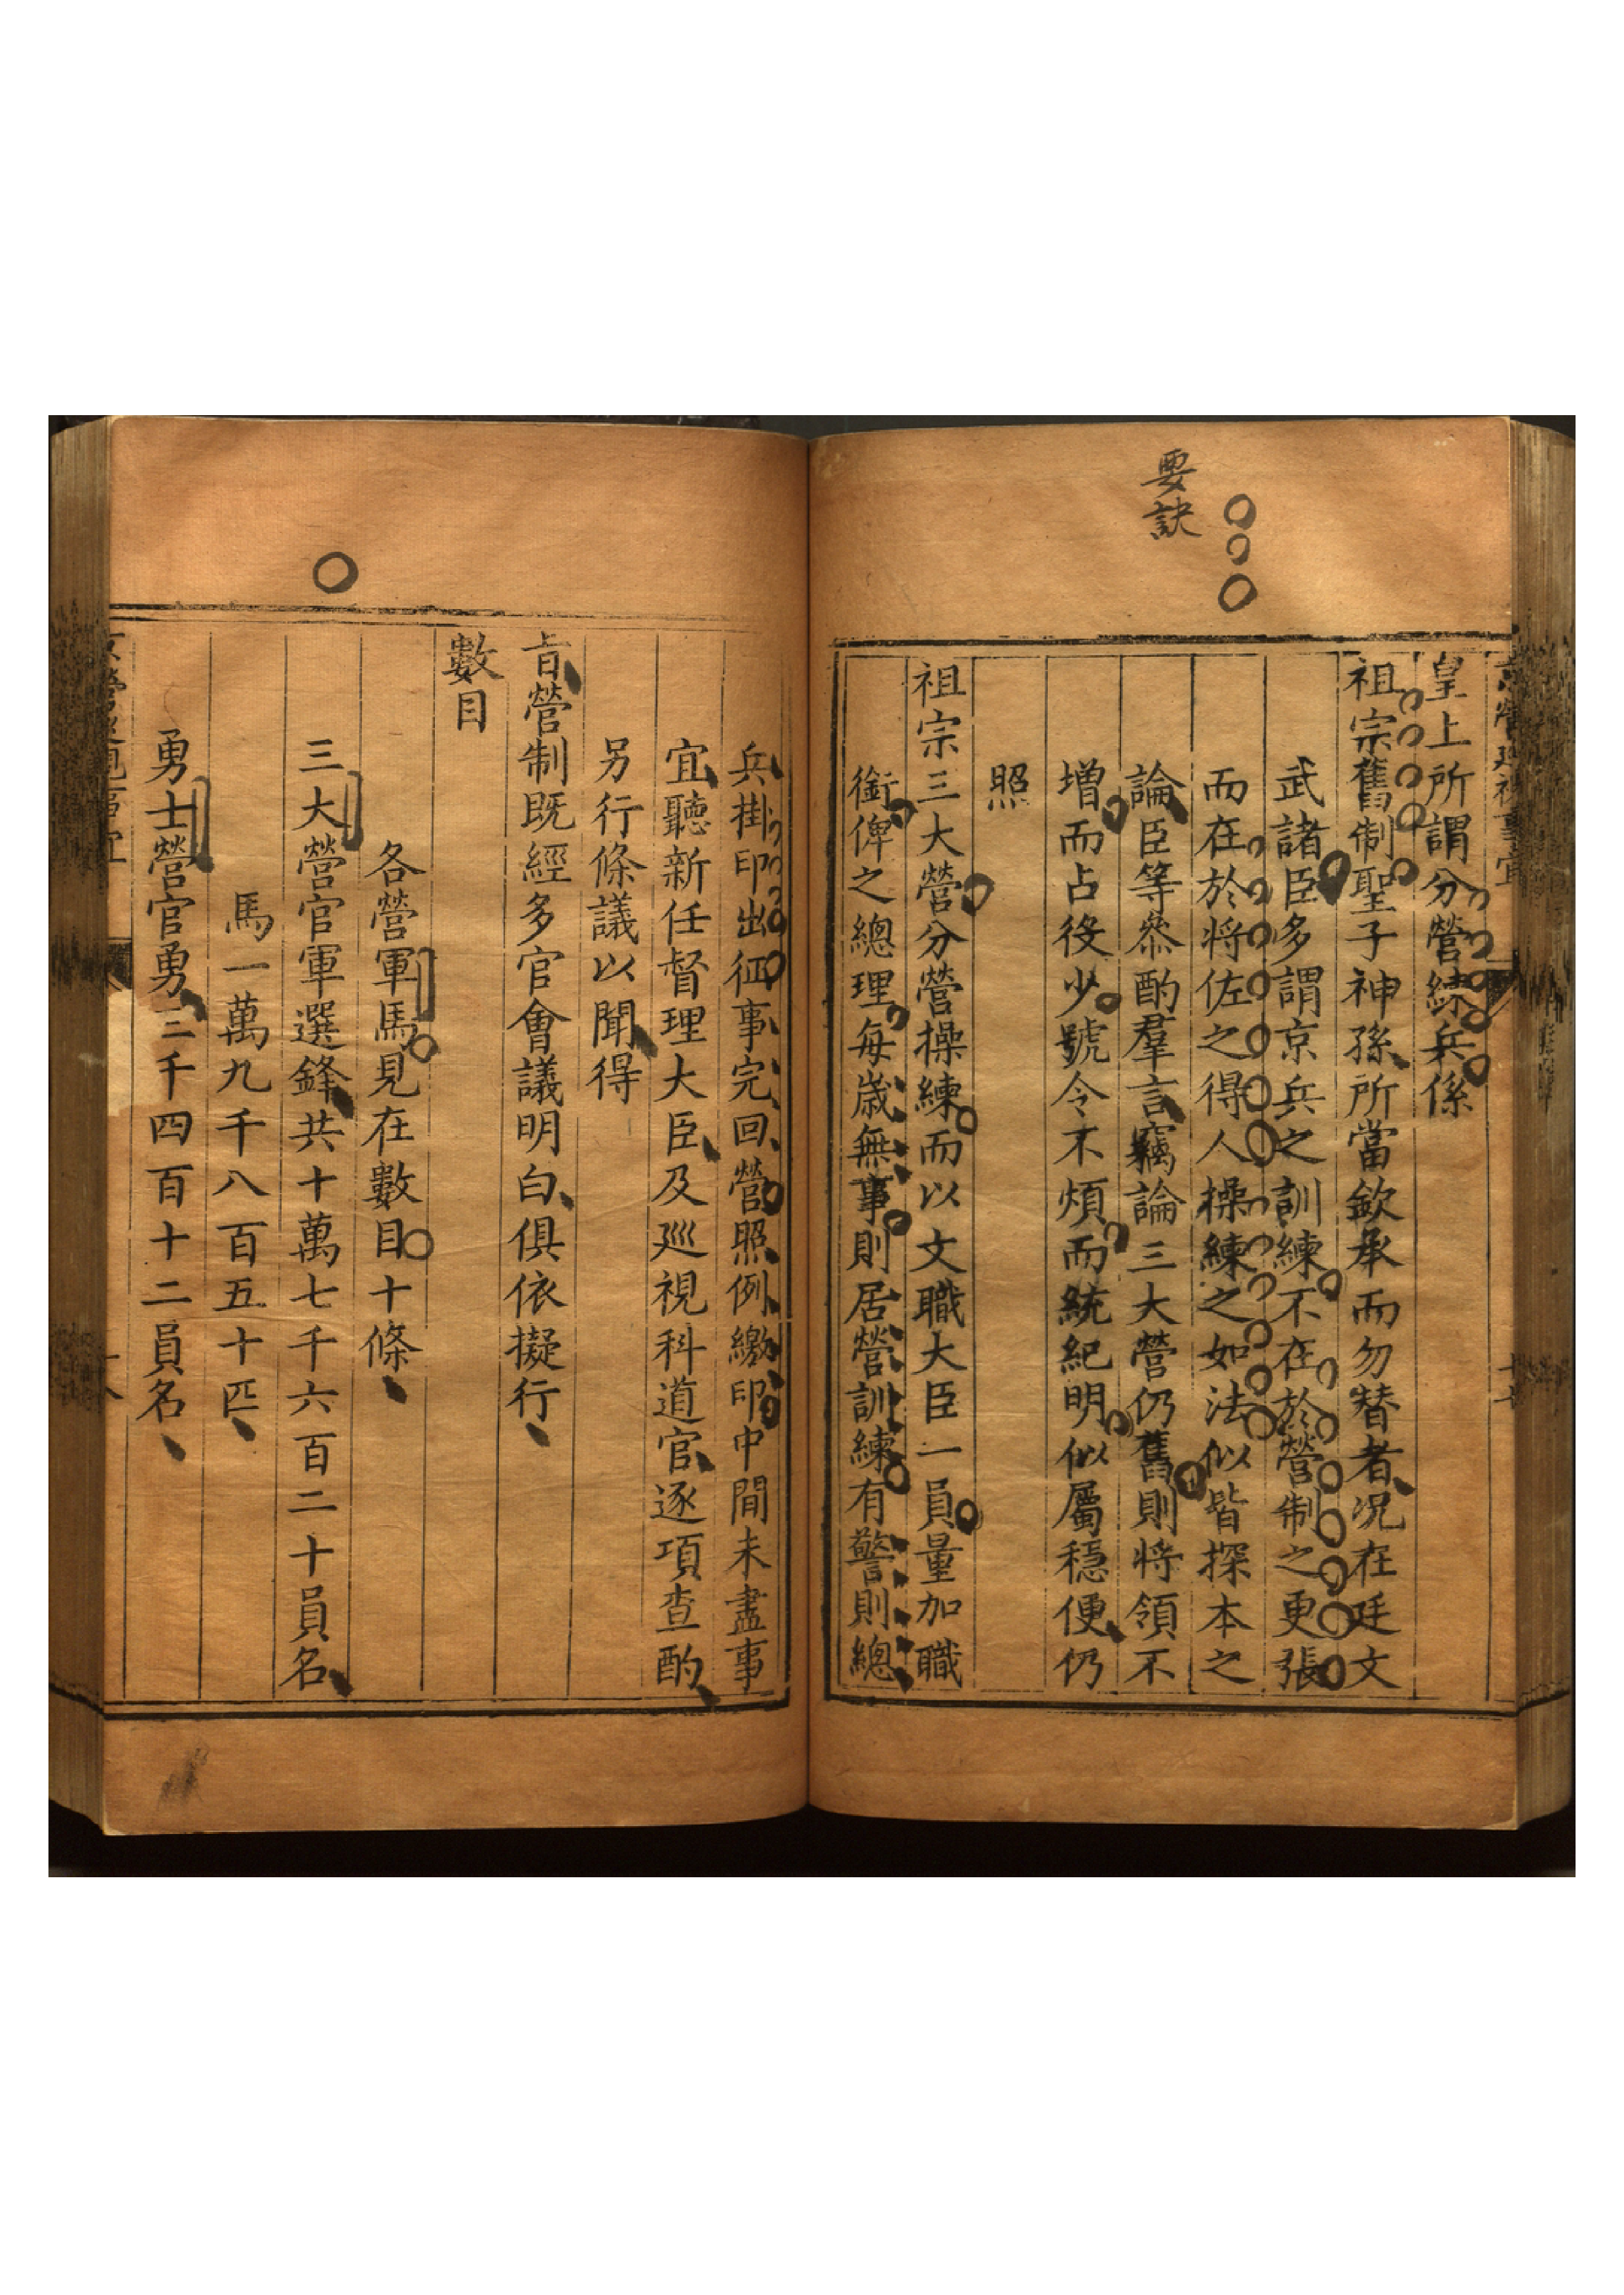 要訣
京營巡視事宜
皇上所謂分營練兵係
祖宗舊制聖子神孫所當欽承而勿替者况在廷文
武諸臣多謂京兵之訓練不在於營制之更張
而在於将佐之得人操練之如法似皆探本之
論臣等叅酌羣言竊論三大營仍舊則将領不
增而占役少號令不煩而統紀明似屬穩便仍
照
祖宗三大營分營操練而以文職大臣一員量加職
銜俾之總理每歲無事則居營訓練有警則總
兵掛印出征事完回營照例繳印中間未盡事
宜聽新任督理大臣及巡視科道官逐項查酌
另行條議以聞得
旨營制既經多官會議明白俱依擬行
數目
各營軍馬見在數目十條
三大營官軍選鋒共十萬七千六百二十員名
馬一萬九千八百五十匹
勇士營官勇三千四百十二員名